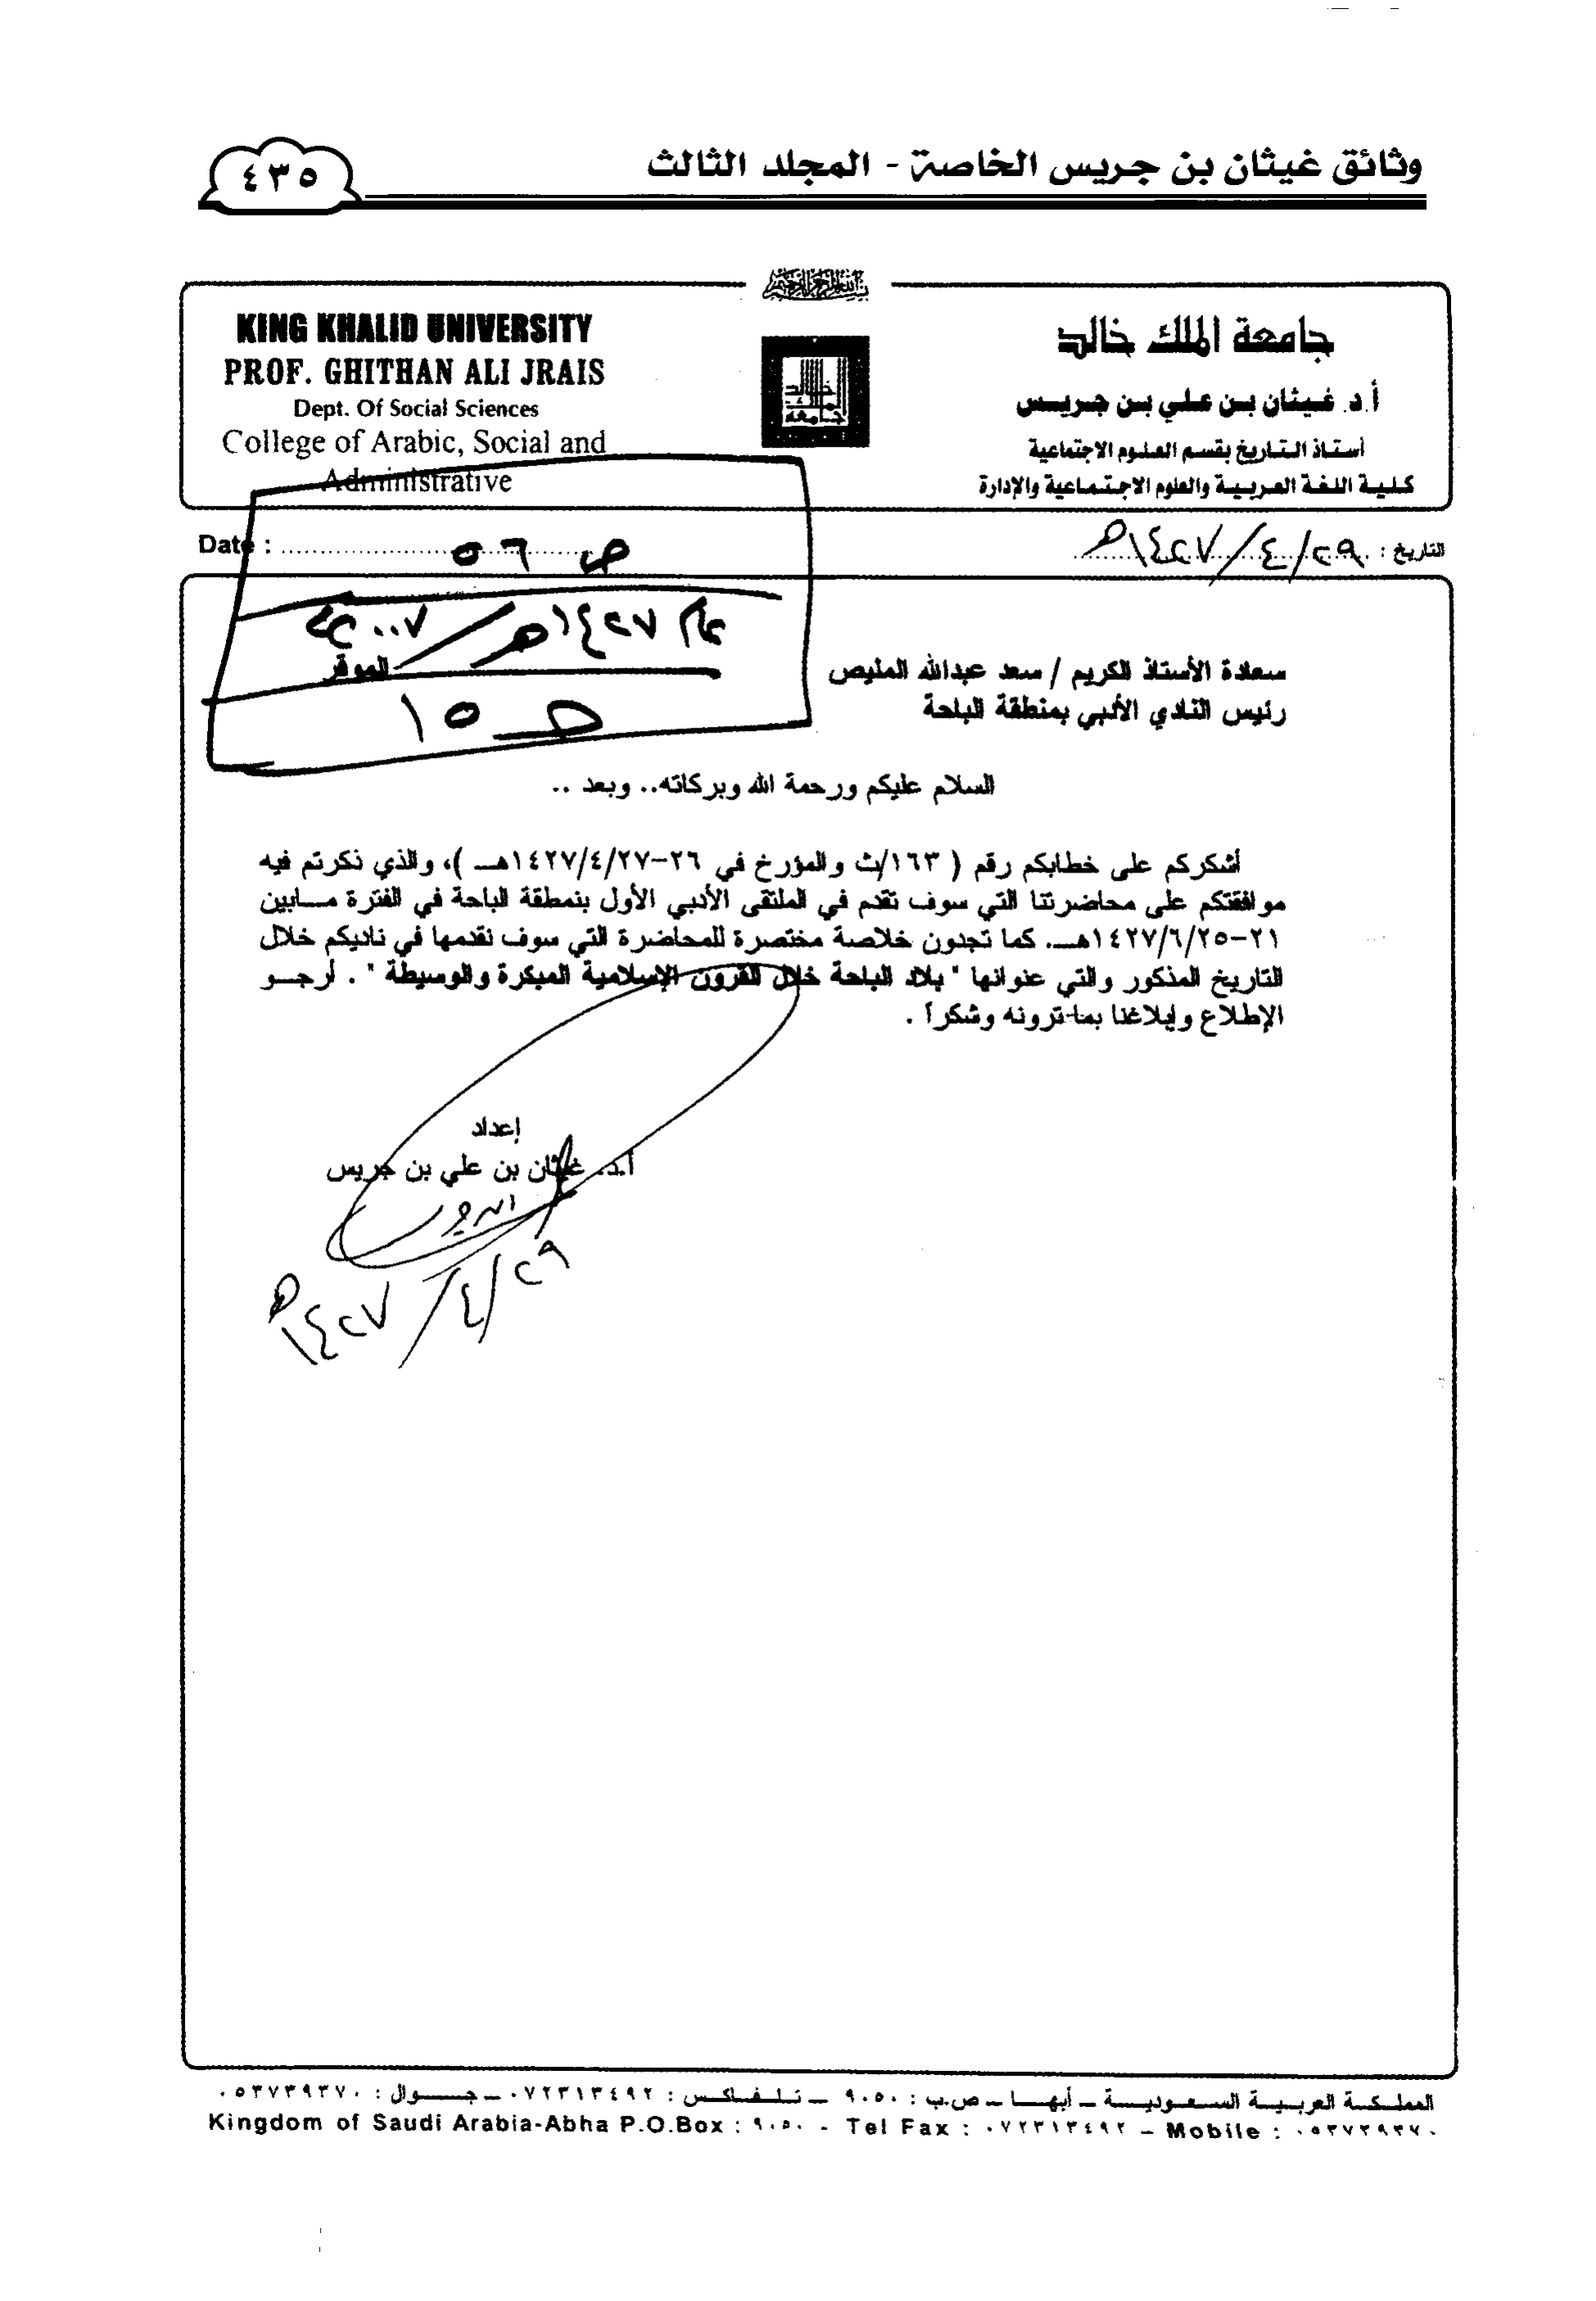 وثائق غيثان بن جريس الخاصة - المجلد الثالث
٤٣٥
جامعة الملك خالد
أ.د. غيثان بن علي بن جريس
أستاذ التاريخ بقسم العلوم الاجتماعية
كلية اللغة العربية والعلوم الاجتماعية والإدارة
KING KHALID UNIVERSITY
PROF. GHITHAN ALI JRAIS
Dept. Of Social Sciences
College of Arabic, Social and
Administrative
التاريخ : ٢٩/٤/١٤٢٧هـ
Date :
ص ٥٦
عام ١٤٢٧هـ/
ص ١٥
سعادة الأستاذ الكريم / سعد عبدالله المليص الموقر
رئيس النادي الأدبي بمنطقة الباحة
السلام عليكم ورحمة الله وبركاته.. وبعد ..
أشكركم على خطابكم رقم ( ١٦٣/ث والمؤرخ في ٢٦-١٤٢٧/٤/٢٧هـ )، والذي ذكرتم فيه
موافقتكم على محاضرتنا التي سوف تقدم في الملتقى الأدبي الأول بنمطقة الباحة في الفترة مابين
٢١-١٤٢٧/٦/٢٥هـ. كما تجدون خلاصة مختصرة للمحاضرة التي سوف نقدمها في ناديكم خلال
التاريخ المذكور والتي عنوانها " بلاد الباحة خلال القرون الإسلامية المبكرة والوسيطة " . أرجو
الإطلاع وإبلاغنا بما ترونه وشكراً .
إعداد
أ.د. غيثان بن علي بن جريس
٢٩/٤/١٤٢٧هـ
المملكة العربية السعودية – أبها – ص.ب : ٩٠٥٠ – تلفاكس : ٠٧٢٣١٣٤٩٢ – جوال : ٠٥٣٧٣٩٣٧٠
Kingdom of Saudi Arabia-Abha P.O.Box : ٩٠٥٠ - Tel Fax : ٠٧٢٣١٣٤٩٢ – Mobile : ٠٥٣٧٣٩٣٧٠